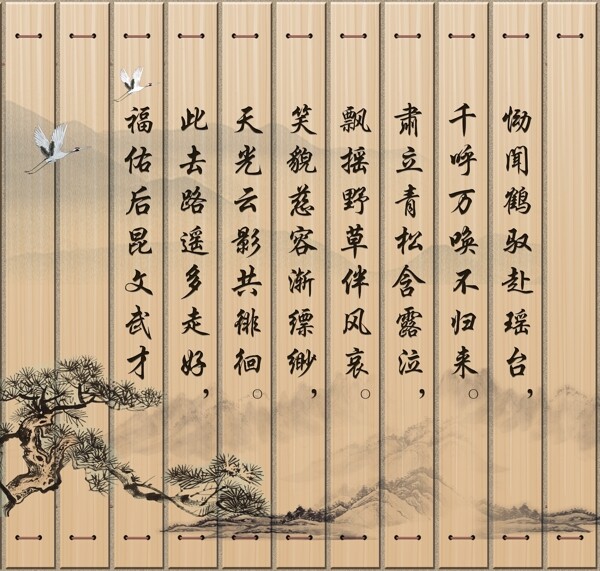 恸闻鹤驭赴瑶台，
千呼万唤不归来。
肃立青松含露泣，
飘摇野草伴风哀。
笑貌慈容渐缥缈，
天光云影共徘徊。
此去路遥多走好，
福佑后昆文武才